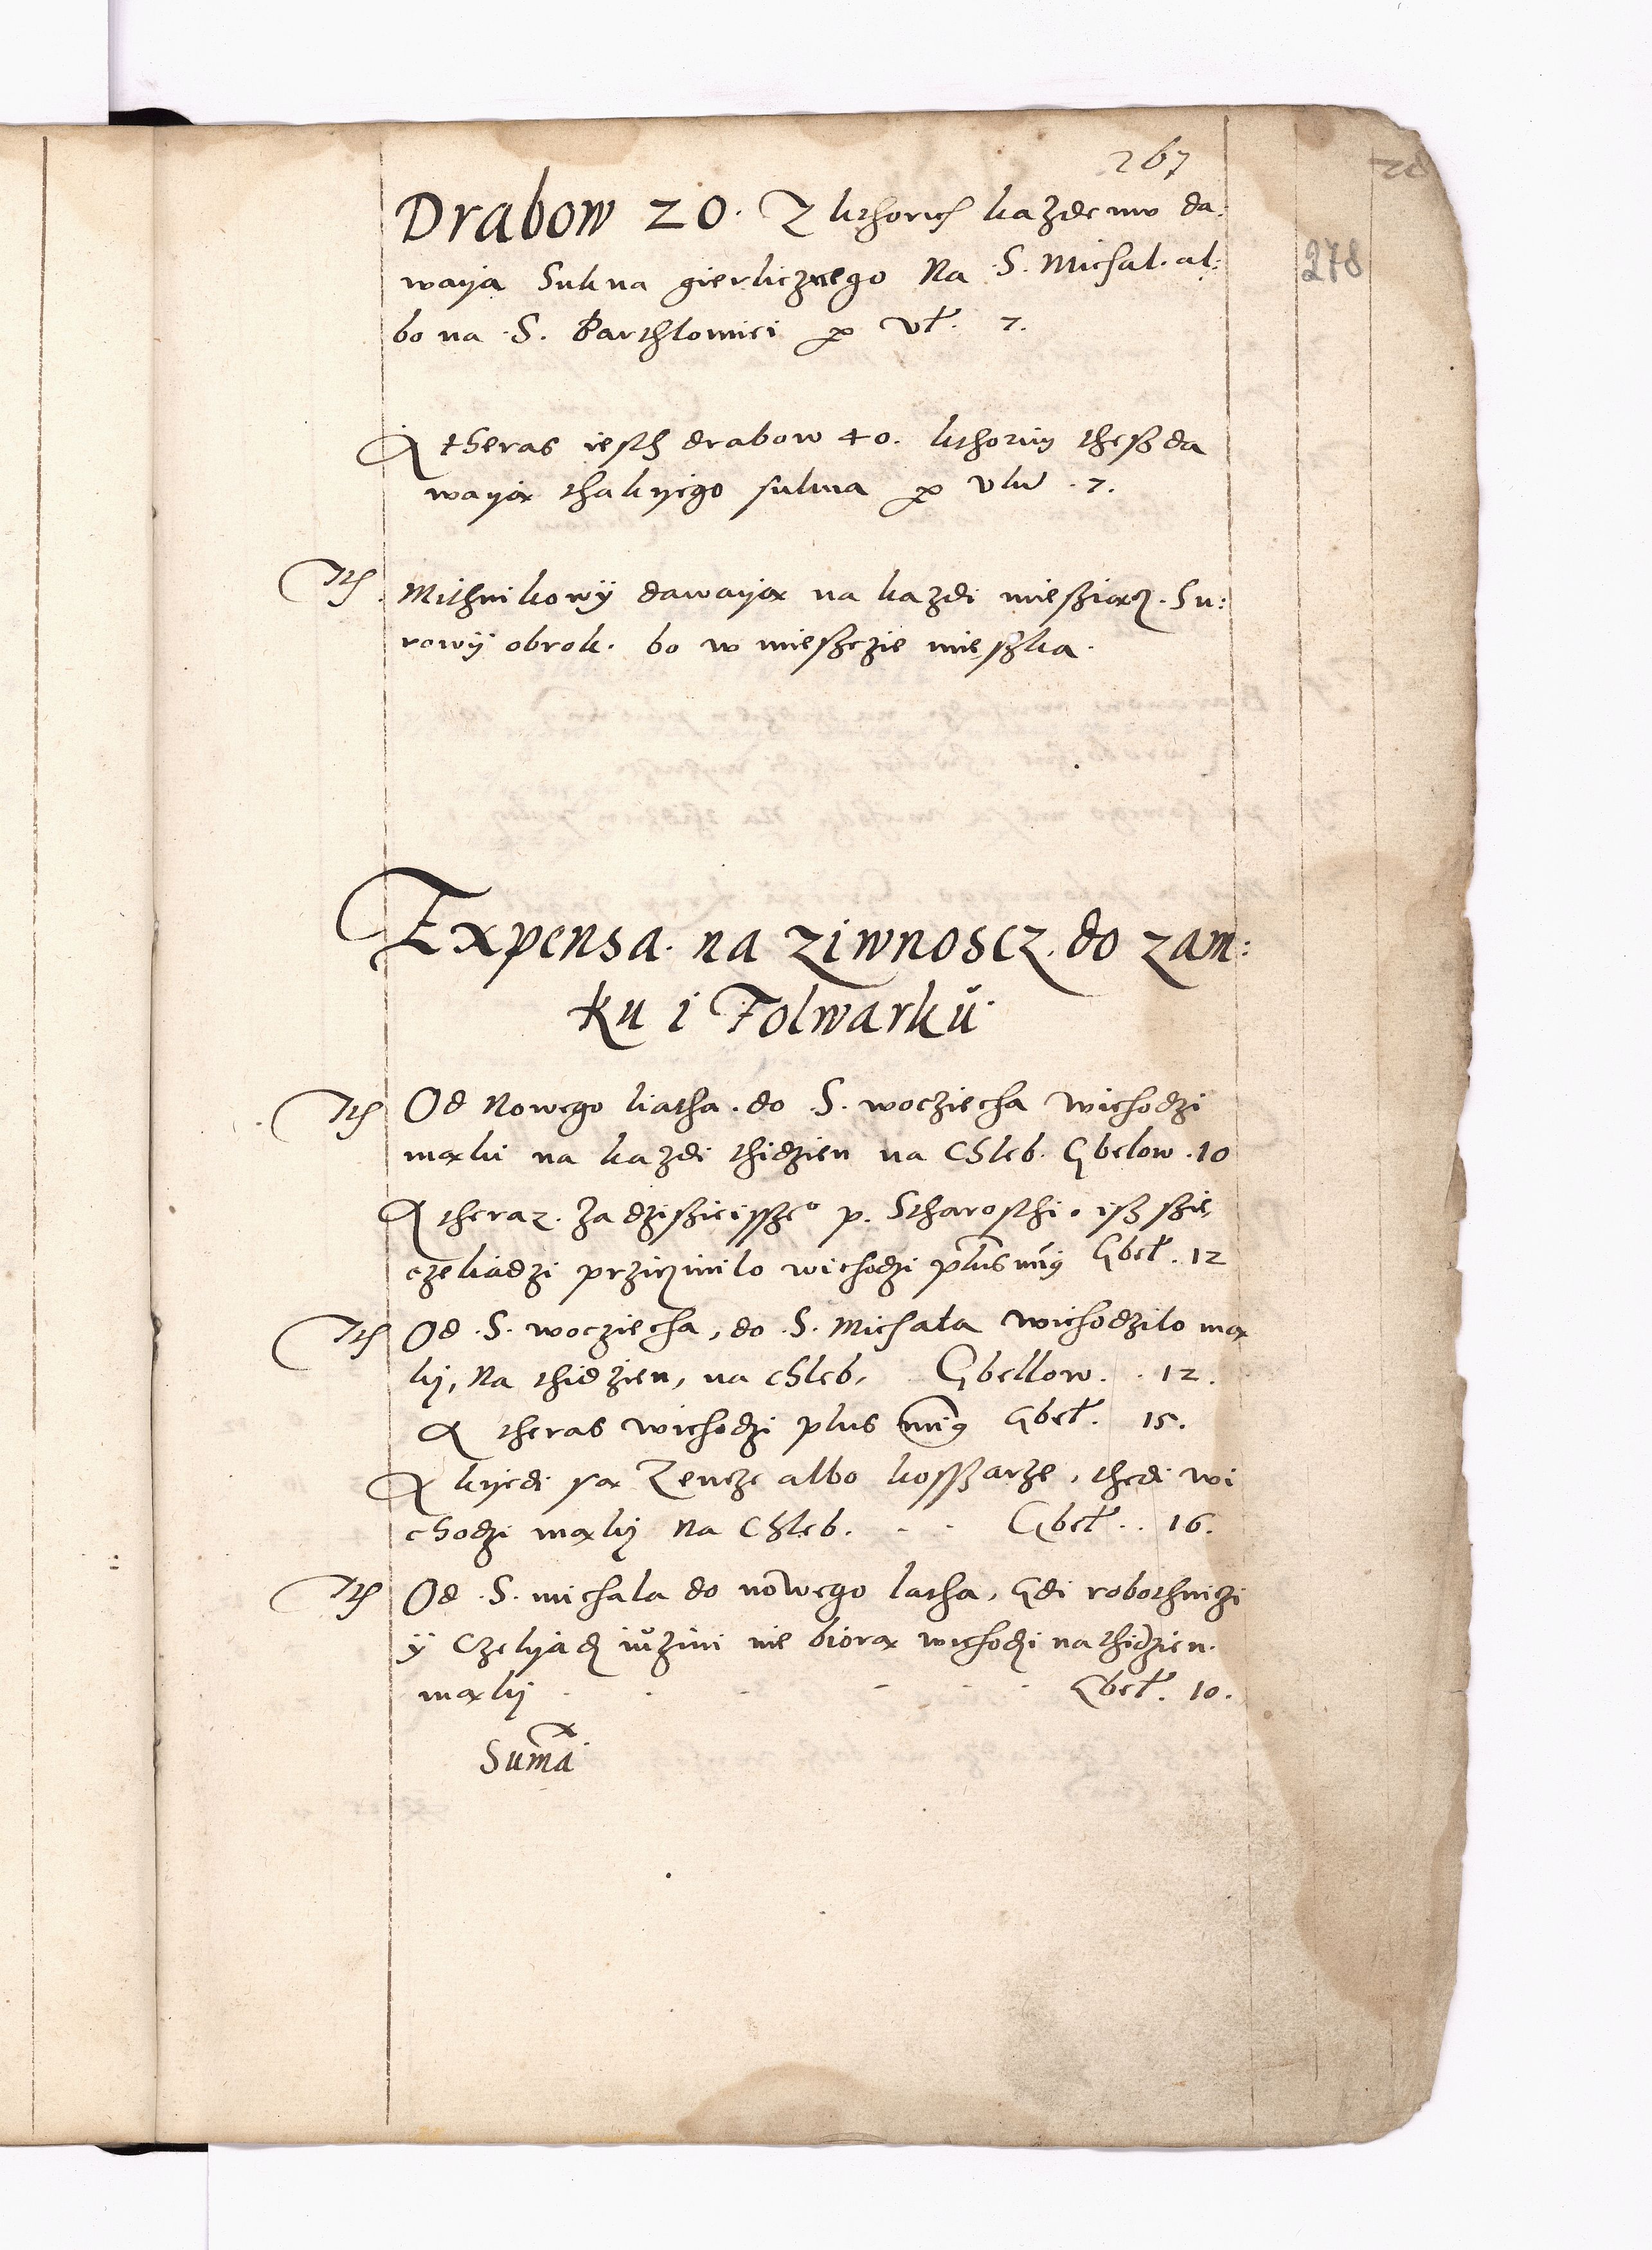 267
278
Drabow 20. Z kthorich kazdemu da:
waya Sukna gierlicznego Na S. Michal. al:
bo na S. Barthlomiei p Vł. 7.
A theras iesth drabow 40. kthorim thesz da
waya thakyego sukna p Vln. 7.
Ith. Mithnikowy dawaya na kazdi miesziacz. Su:
rowy obrok. bo w miesczie mieszka.
Expensa. na ziwnoscz. do zam:
ku i Folwarku
Ith Od Nowego liatha. do S. wocziecha wichodzi
maki na kazdi thidzien na Chleb. Gbelow. 10
A theraz. za dzisieissze° p. Starosthi. isz szie,
czeliadzi przicinilo wichodzi plus min9 Gbeł. 12
Ith Od S. wocziecha, do S. Michała wichodzilo ma
ky, Na thidzien, na chleb, Gbellow. 12.
A theras wichodzi plus min9 Gbeł. 15.
A kyedi sa Zencze albo kosszarze, thedi wi
chodzi maky Na Chleb. - - Gbeł. 16.
Ith Od S. michala do nowego latha, Gdi robothnizi
y Czelyadz iuzini nie biora wichodzi na thidzien.
maky - - - - - Gbeł. 10.
Suma